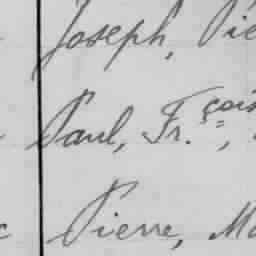 Joseph, Pie
Paul, Fr.çois,
Pierre, Ma